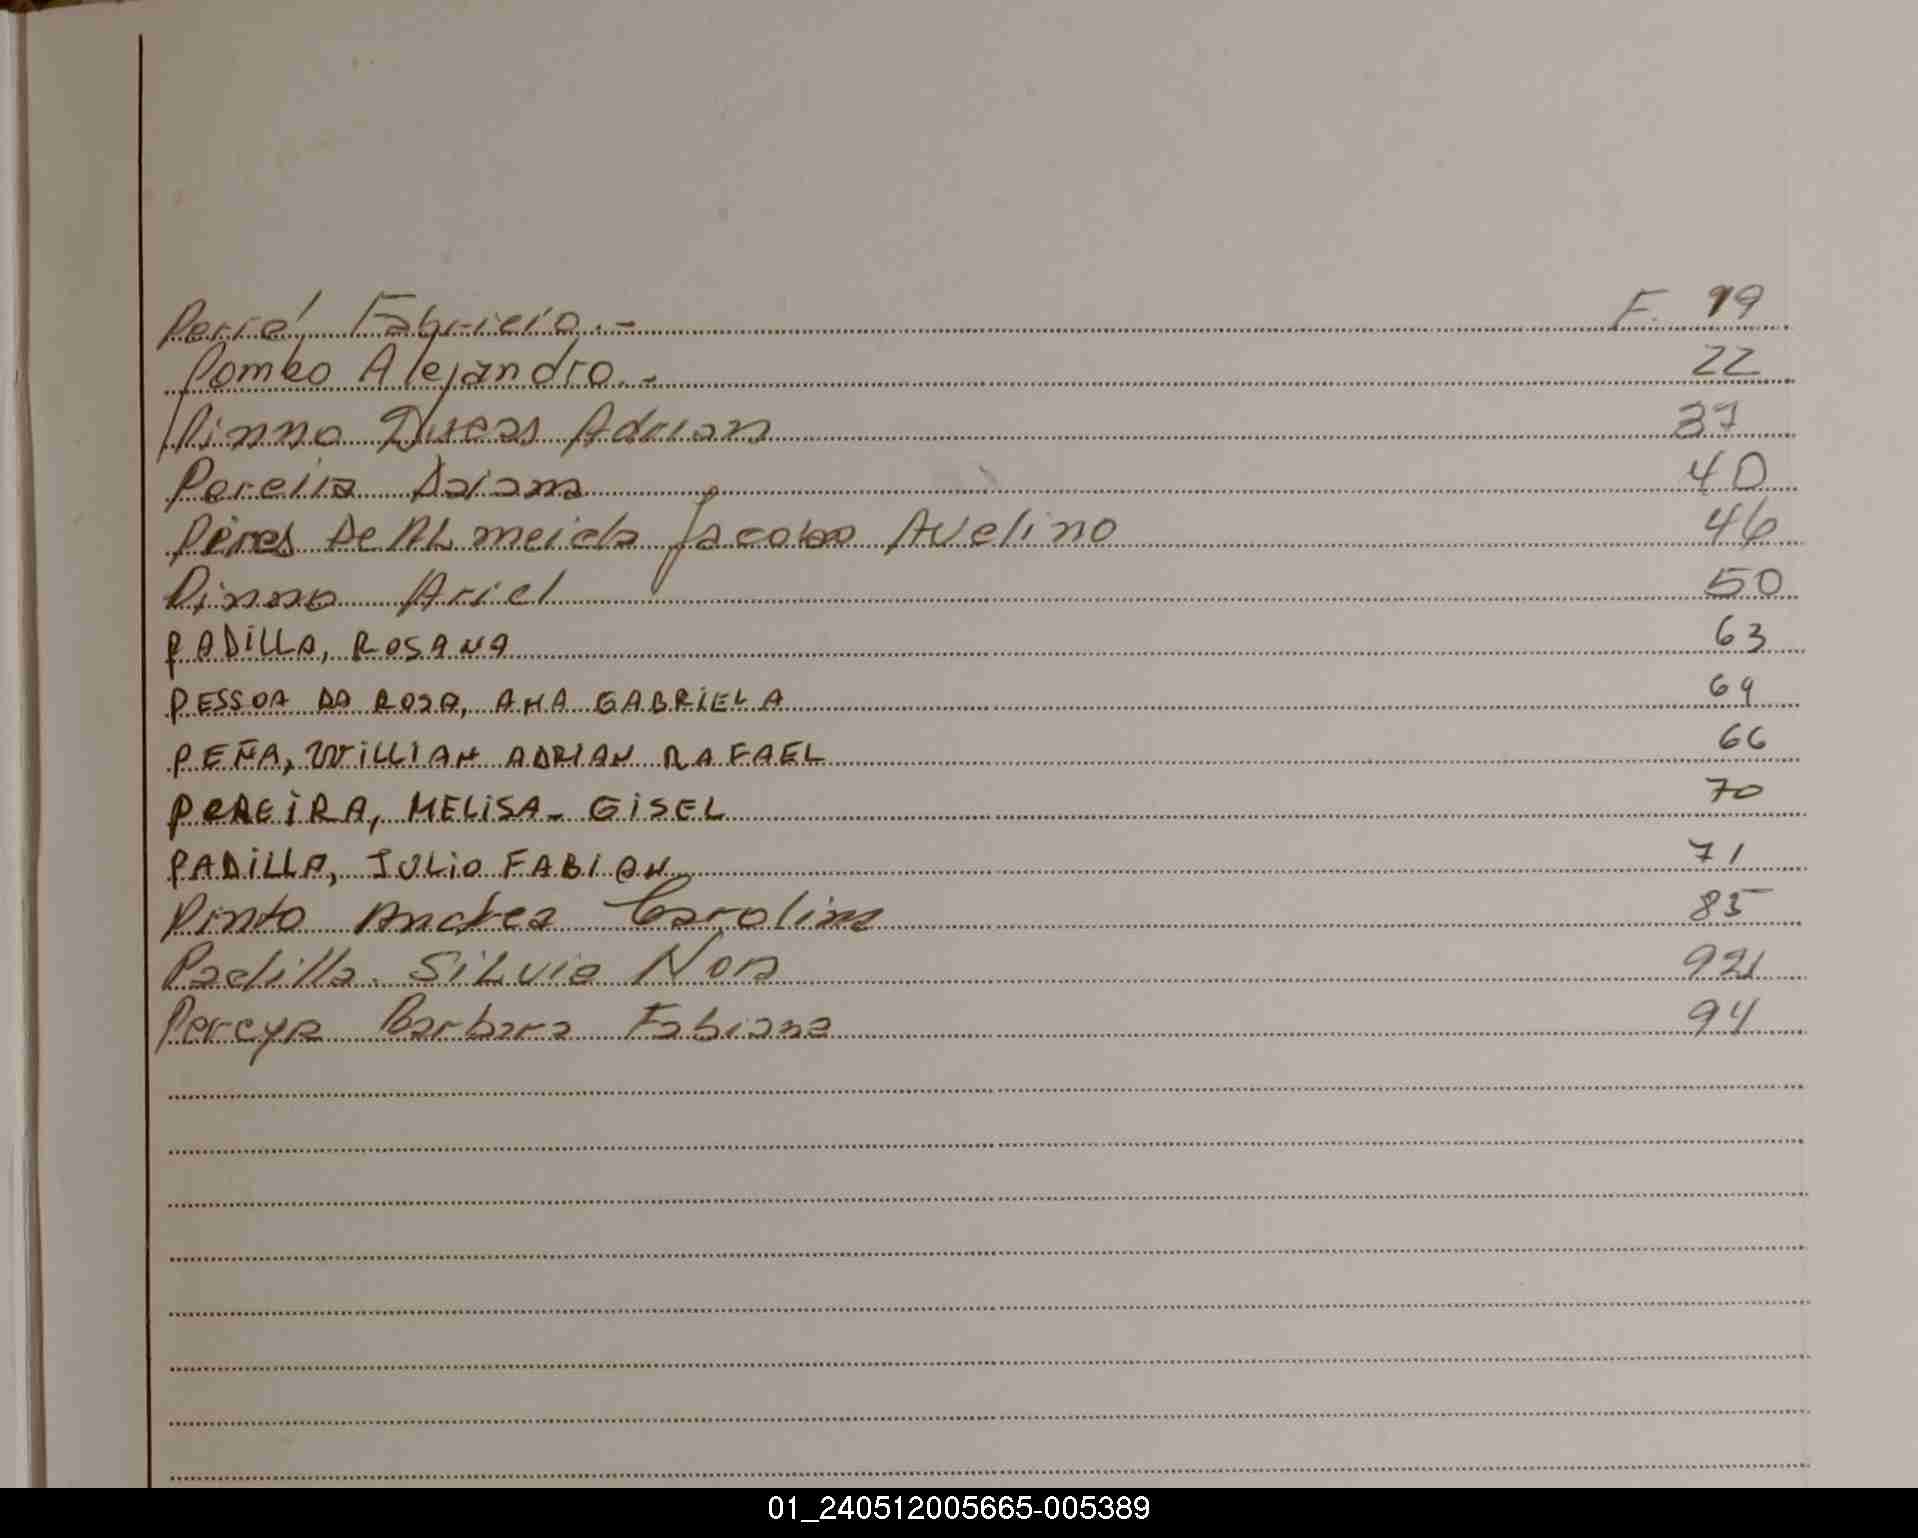 Perré Fabricio.- F. 19
Pombo Alejandro.- 22
Pinno Lucas Adrian 37
Pereira Daiana 40
Pires De ALmeida Jacobo Avelino 46
Pinno Ariel 50
PADiLLA, ROSANA 63
PESSOA DA ROSA, ANA GABRiELA 64
PEÑA, WiLLIAN ADRIAN RAFAEL 66
PEREiRA, MELiSA- GiSEL 70
PADiLLA, JULiO FABIAN 71
Pinto Andrea Carolina 85
Padilla SiLvia Non 921
Pereyra Barbara Fabiana 94
01_240512005665-005389